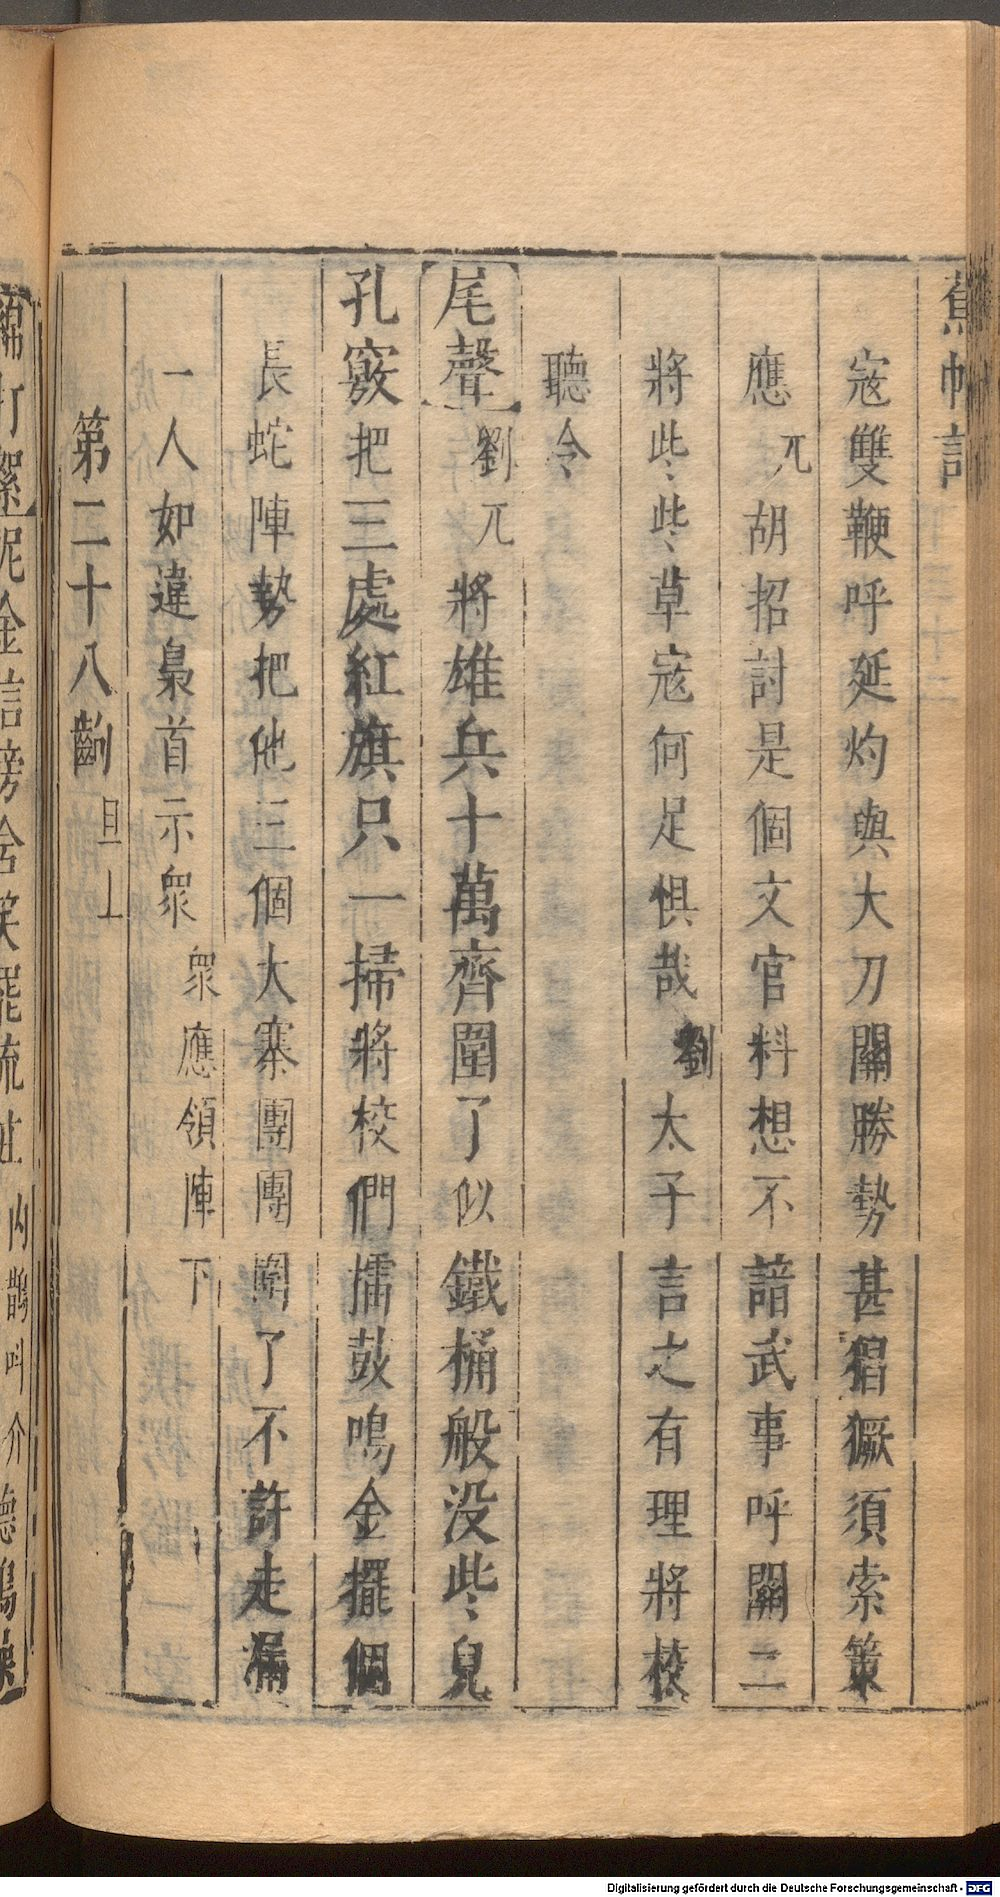 蕉帕記
寇雙鞭呼延灼與大刀關勝勢甚猖獗須索策
應 兀 胡招討是個文官料想不諳武事呼關二
將些些草寇何足惧哉 劉 太子言之有理將校
聽令
尾聲 劉兀 將雄兵十萬齊圍了似鐵桶般没些兒
孔竅把三處紅旗只一掃將校們擂鼓鳴金擺個
長蛇陣勢把他三個大寨團團圍了不許走漏
一人如違梟首示衆 衆應領陣下
第二十八齣 旦上
綿打絮 泥金信榜舍笑罷流 内鵲叫介
Digitalisierung gefördert durch die Deutsche Forschungsgemeinschaft - DFG